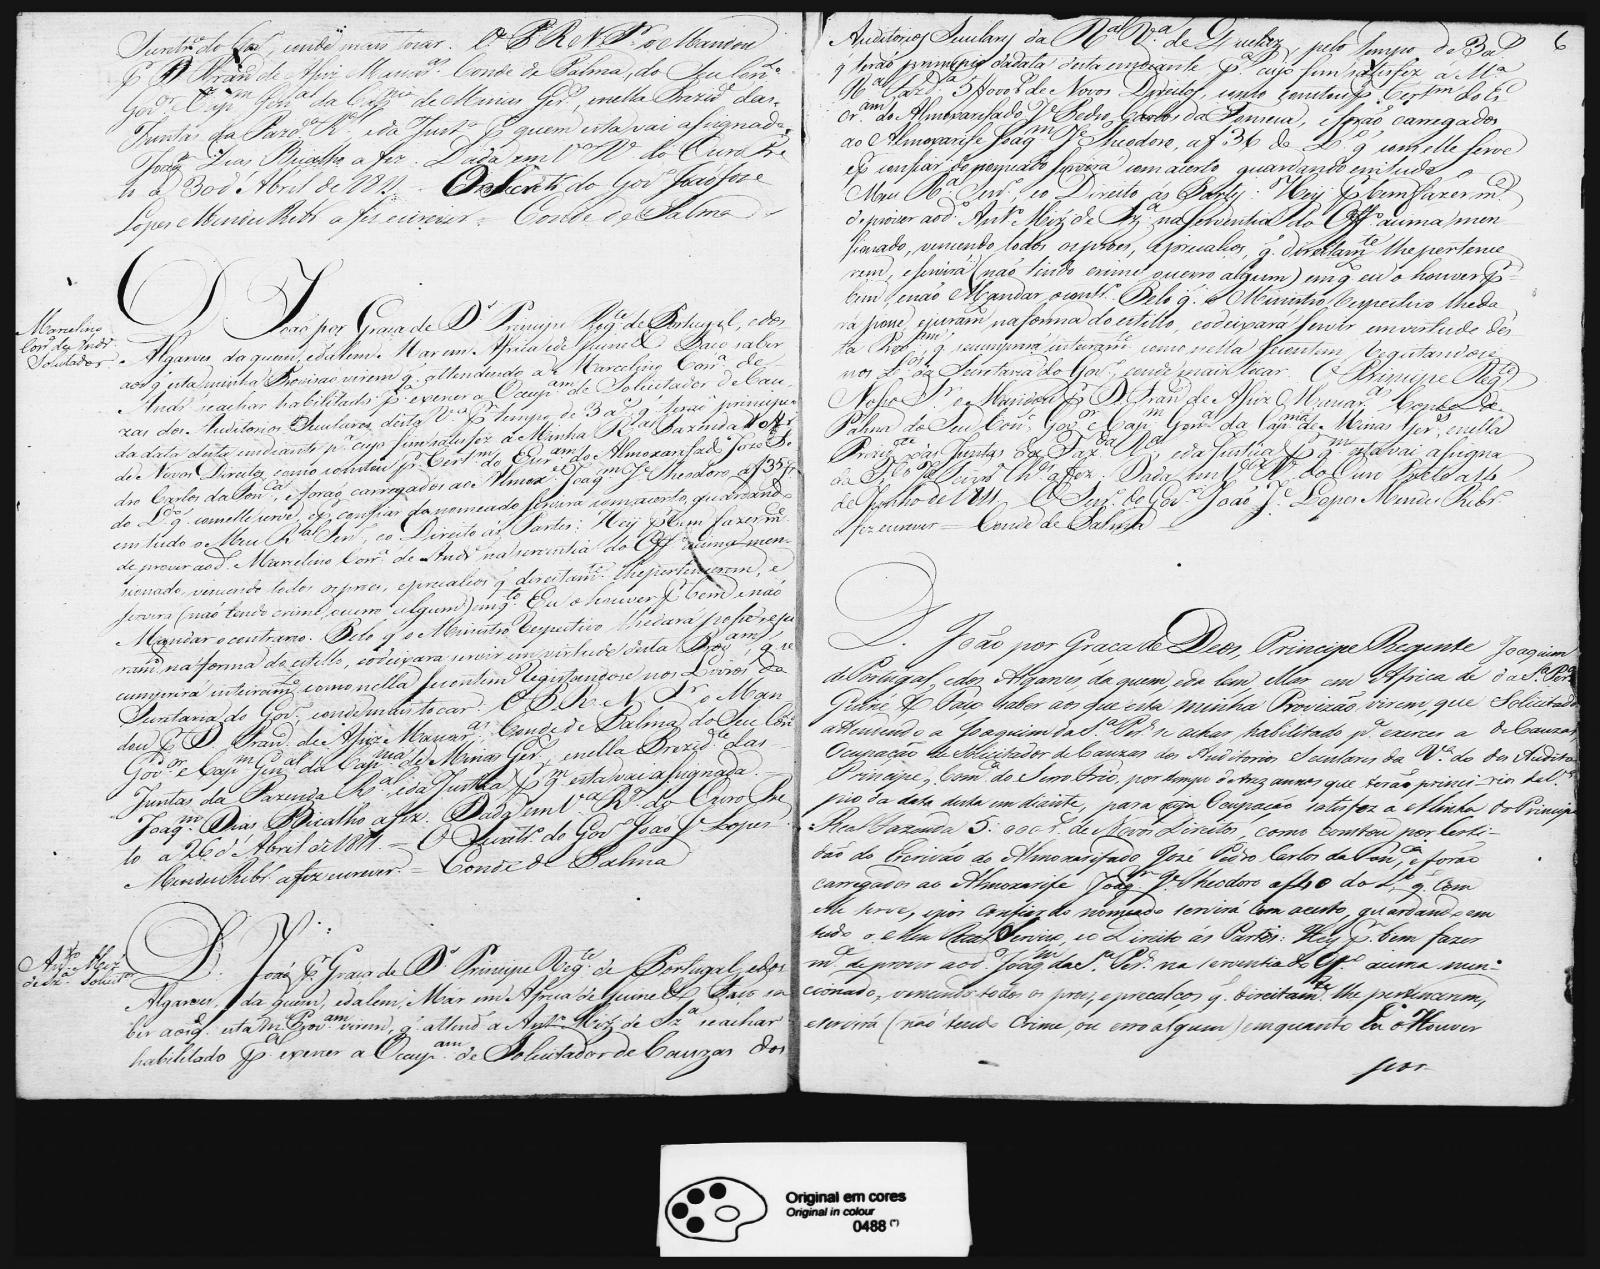 Secretrª do Govº, onde mais tocar. O P. R. N. Sr. o Mandou
por D. Franº de Assiz Mascªs Conde de Palma, do Seu Consº
Govºr e Capm Genal da Capnia de Minas Gers, e nella Prezidte das
Juntas da Fazdª Rl e da Justª por quem esta vai assignada
Joaqm Dias Bicalho a fez. Dada em Vª Rª do Ouro Pre
to a 30 d'Abril de 1811. O Secretrº do Govº João Jose
Lopes Mendes Ribrº a fez escrever = Conde de Palma
Marcelino
Corrª de Andr
Solicitador
D. João por Graça de Ds Principe Regte de Portugal, e dos
Algarves da quem, e dalem Mar em Africa de Guine &ª Faço saber
aos q esta minha Provisão virem q attendendo a Marcelino Corrª de
Andrº se achar habilitado pª exercer a Ocupam de Solicitador de Cau
zas dos Auditorios Seculares desta Vª por tempo de 3 as q terão principio
da data deste em diante pª cujo fim satisfez á Minha Rl Fazenda
de Novos Direitos como constou por Certm do Escram do Almoxarifado José Pe
dro Carlos da Fonca, e forão carregados ao Almoxe Joaqm Je Theodoro, a f 35
do Lº q com elle serve, e p confiar do nomeado servirá com acerto, guardando
em tudo o Meu Rl Servº, e o Direito ás Partes: Hey por bem fazer mce
de prover ao dº Marcelino Corrª de Andrº na serventia do Offº acima men
cionado, vencendo todos os proes, e precalços q direitamte lhe pertencerem, e
servirá (não tendo crime, ou erro algum) em qto Eu o houver por bem e não
Mandar o contrario. Pelo q o Ministro respectivo lhe dará posse e ju
ramto na forma do estillo, e o deixará servir em virtude desta Provam, q se
cumprirá inteiramte como nella se contem Registandose nos Livros da
Secretaria do Govº, e onde mais tocar. O P. R. N. Sr o Man
dou por D. Franº de Assiz Mascªs Conde de Palma do Seu Consº
Govºr e Capm Genal da Capnia de Minas Gers, e nella Prezidte das
Juntas da Fazenda Rl e da Justiça por qm esta vai assignada.
Joaqm Dias Bicalho a fez. Dada em Vª Rª do Ouro Pre
to a 26 d'Abril de 1811. = O Secretrº do Govº João Je Lopes
Mendes Ribrº a fez escrever. = Conde de Palma
Antº Miz
de Szª Solicitr
D. João por Graça de Ds Principe Regte de Portugal, e dos
Algarves, da quem, e dalem, Mar em Africa de Guine &ª Faço sa
ber aos q esta mª Provam virem, q attendº a Antº Miz de Szª se achar
habilitado pª exercer a Ocupam de Solicitador de Cauzas dos
6
Auditorios Seculares da Rl Vª de Queluz, pelo tempo de 3 as
q terão principio da data desta em diante pª cujo fim satisfez á Mª
Rl Fazdª 5$000 rs de Novos Direitos, como constou por Certm do Es
cram do Almoxarifado Je Pedro Carlos da Fonseca, e forão carregados
ao Almoxarife Joaqm Je Theodoro, a f 36 do Lº q com elle serve
e p confiar do nomeado servirá com acerto guardando em tudo o
Meu Rl Servº, e o Direito ás Partes: Hey por bem fazer mce
de prover ao dº Antº Miz de Szª na serventia do Offº acima men
cionado, vencendo todos os proes, e precalços, q direitamte lhe perten
cerem, e servirá (não tendo crime ou erro algum) em qto eu o houver por
bem, e não Mandar o contrº. Pelo q o Ministro respectivo lhe da
rá posse, e juramto na forma do estillo, e o deixará servir em virtude des
ta Provam, q se cumprirá inteiramte como nella se contem Registandose
nos Lºs da Secretaria do Govº, e onde mais tocar. O Principe Regte
Nosso Sr o Mandou por D. Franº de Assiz Mascªs Conde de
Palma do Seu Consº Govºr e Capm Genal da Capnia de Minas Gers, e nella
Prezidte das Juntas da Fazdª Rl, e da Justiça por qm esta vai assigna
da. a fez. Dada em Vª Rª do Ouro Preto a 14
de Junho de 1811. O Secrº do Govº João Je Lopes Mendes Ribrº
a fez escrever = Conde de Palma
D. João por Graça de Deos, Principe Regente
de Portugal, e dos Algarves, da quem, e da lem Mar em Africa de
Guiné &ª Faço saber aos que esta minha Provizão virem, que
attendendo a Joaquim da Sª Perª se achar habilitado pª exercer a
Ocupação de Solicitador de Cauzas dos Auditorios Seculares da Vª do
Principe, Comcª do Serro Frio, por tempo de trez annos que terão princi
pio da data desta em diante, para cuja Ocupação satisfez a Minha
Real Fazenda 5$000 rs de Novos Direitos, como constou por Certi
dão do Escrivão do Almoxarifado José Pedro Carlos da Fonca, e forão
carregados ao Almoxarife Joaqm Je Theodoro a f 40 do Lº q com
elle serve, e por confiar do nomeado servirá com acerto, guardando em
tudo o Meu Real Serviço, e o Direito ás Partes: Hey por bem fazer
mce de prover ao dº Joaqm da Sª Perª na serventia do Offº acima men
cionado, vencendo todos os proes, e precalços q direitamte lhe pertencerem,
e servirá (não tendo Crime, ou erro algum) em quanto Eu o Houver
por
Joaquim
da Sª Perª
Solicitador
de Cauzas
dos Audito
rios da Vª
do Principe
Original em cores
Original in colour
0488 (*)